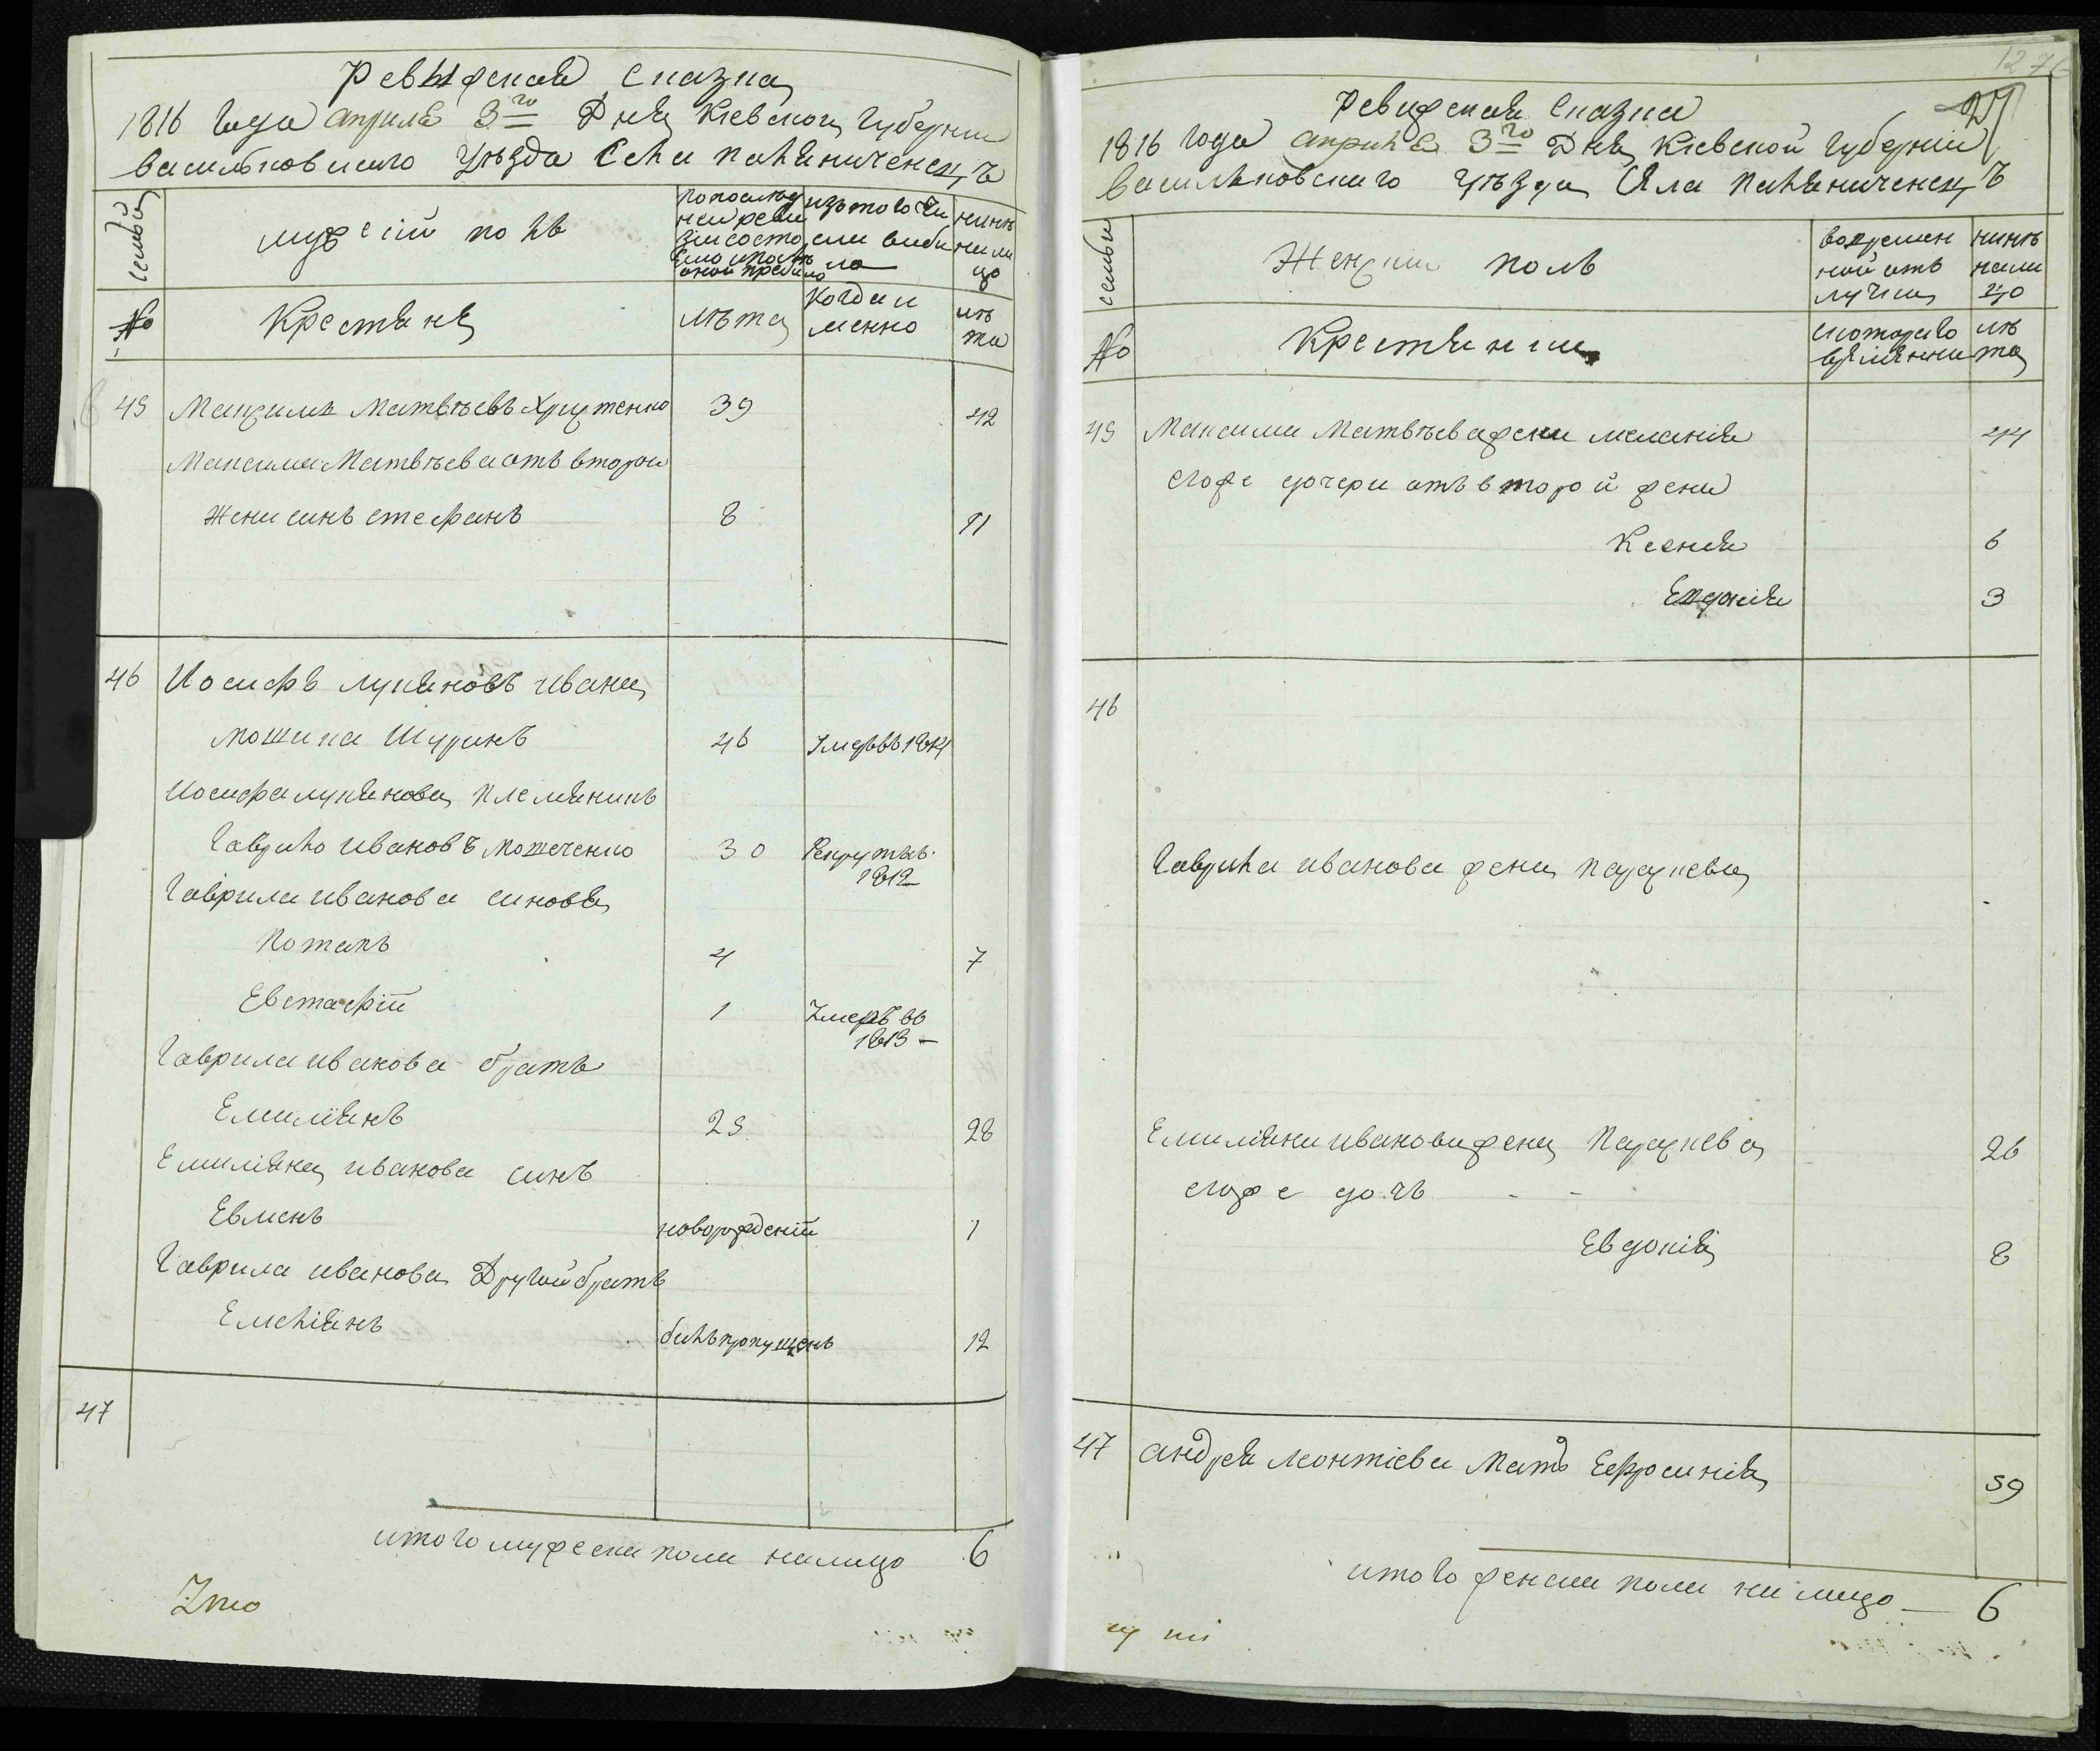 Ревызская сказка
1816 Года априля 3го Дня Киевской Губернии
васильковскаго уѣзда Села палianиченецъ
семьи
мужескій полъ
по послѣд
ней реви
зіи состо
яло и послѣ
оной прибило
изъ того чи
сла виби
ло
нинѣ
на ли
цо
№
Крестяне
лѣта
когда и
менно
лѣ
та
45 Максимъ Матвѣевъ Хрущенко 39 42
Максима Матвѣева отъ второй
жени синъ стефанъ 8 11
46 Иосифъ лукяновъ ивана
мошка Шуринъ 46 Умеръ въ 1814
Иосифа лукянова племяникъ
Гаврило ивановъ мошеченко 30 Рекрутъ въ
1812
Гаврила иванова синовя
Потапъ 4 7
Евстафій 1 Умеръ въ
1813
Гаврила иванова братъ
Емиліянъ 25 28
Емиліяна иванова синъ
Евменъ новорожденій 1
Гаврила иванова Другой братъ
Емеліянъ билъ пропущенъ 12
47
итого мужеска пола налицо 6
1276
27
Ревизская Сказка
1816 Года априля 3го Дня Киевской Губерніи
Васильковскаго уѣзда Села паляниченецъ
семьи
Женский полъ
во времен
ной отъ
лучки
нинѣ
нали
цо
№
Крестянки
скотораго
времянни
лѣ
та
45 Максима Матвѣева жена меланія 44
егоже дочери отъ второй жени
Ксенія 6
Евдокія 3
46
Гаврила иванова жена параскева
Емиліяна иванова жена Параскева 26
егоже дочъ - -
Евдокія 8
47 андрея леонтіева Мать Ефросинія 59
итого женска пола на лицо — 6